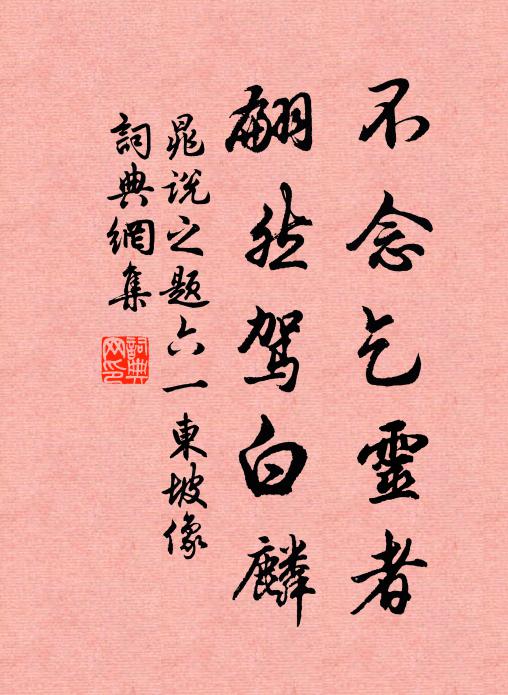 不念乞靈者
翩然駕白麟
晁說之題六一東坡像
詞典網集
詞典
网印